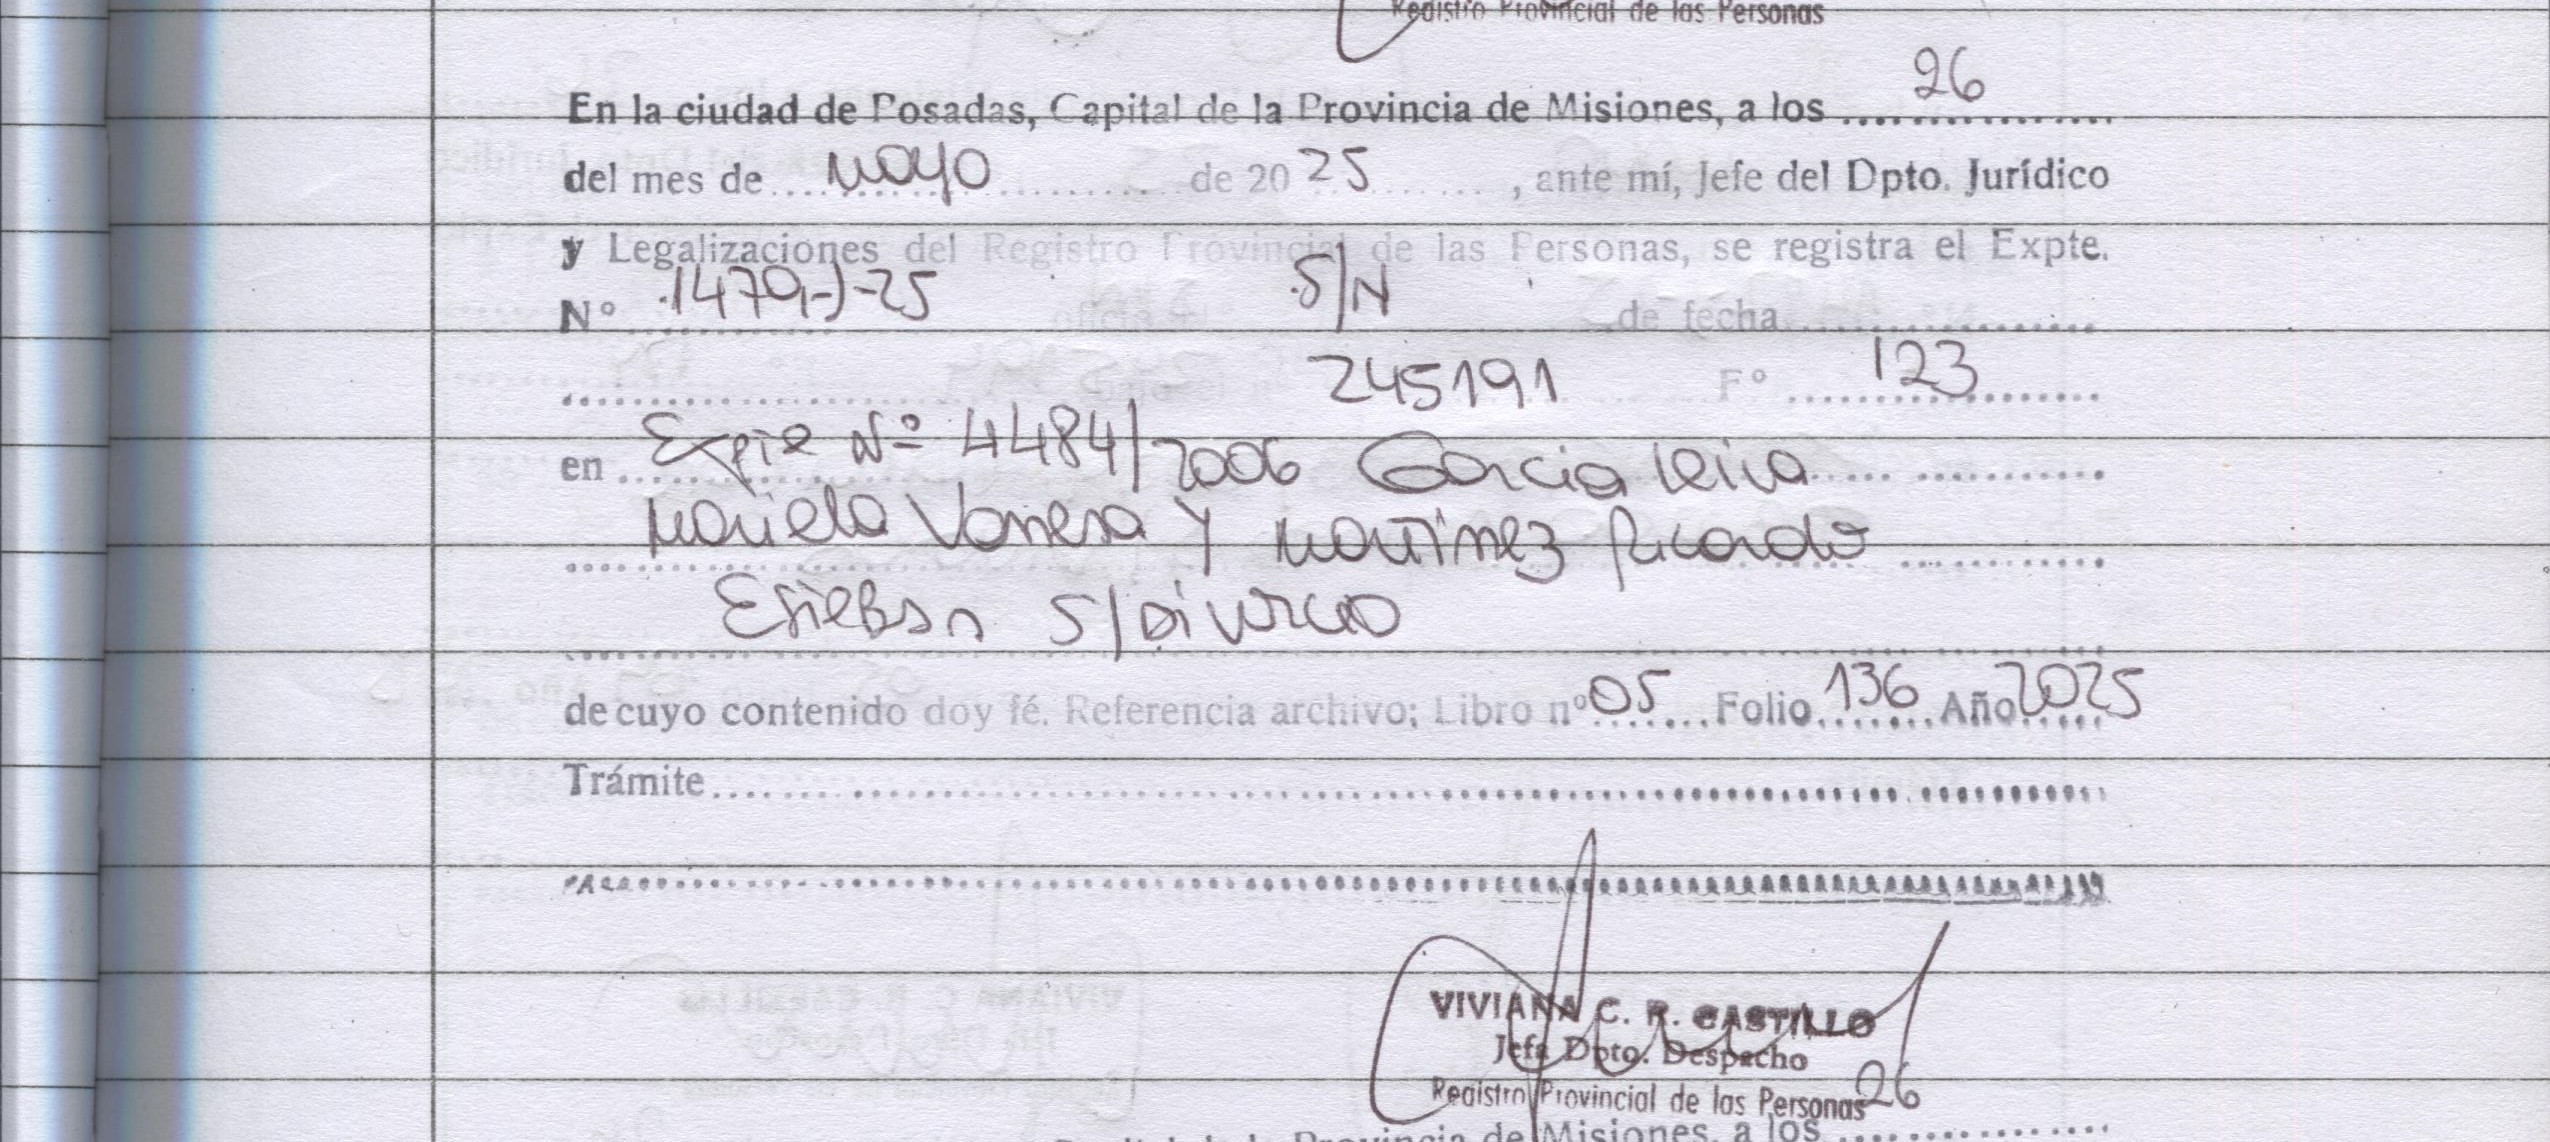 Registro Provincial de las Personas
En la ciudad de Posadas, Capital de la Provincia de Misiones, a los 26
del mes de mayo de 2025, ante mí, Jefe del Dpto. Jurídico
y Legalizaciones del Registro Provincial de las Personas, se registra el Expte.
Nº 1479-J-25 S/N de fecha
245191 Fº 123
en Expte Nº 4484/2006 Garcia Leiva
Mariela Vanesa Y Martinez Ricardo
Esteban S/Divorcio
de cuyo contenido doy fé. Referencia archivo; Libro nº 05 Folio 136 Año 2025
Trámite
VIVIANA C. R. CASTILLO
Jefa Dpto. Despacho
Registro Provincial de las Personas
26
Provincia de Misiones, a los